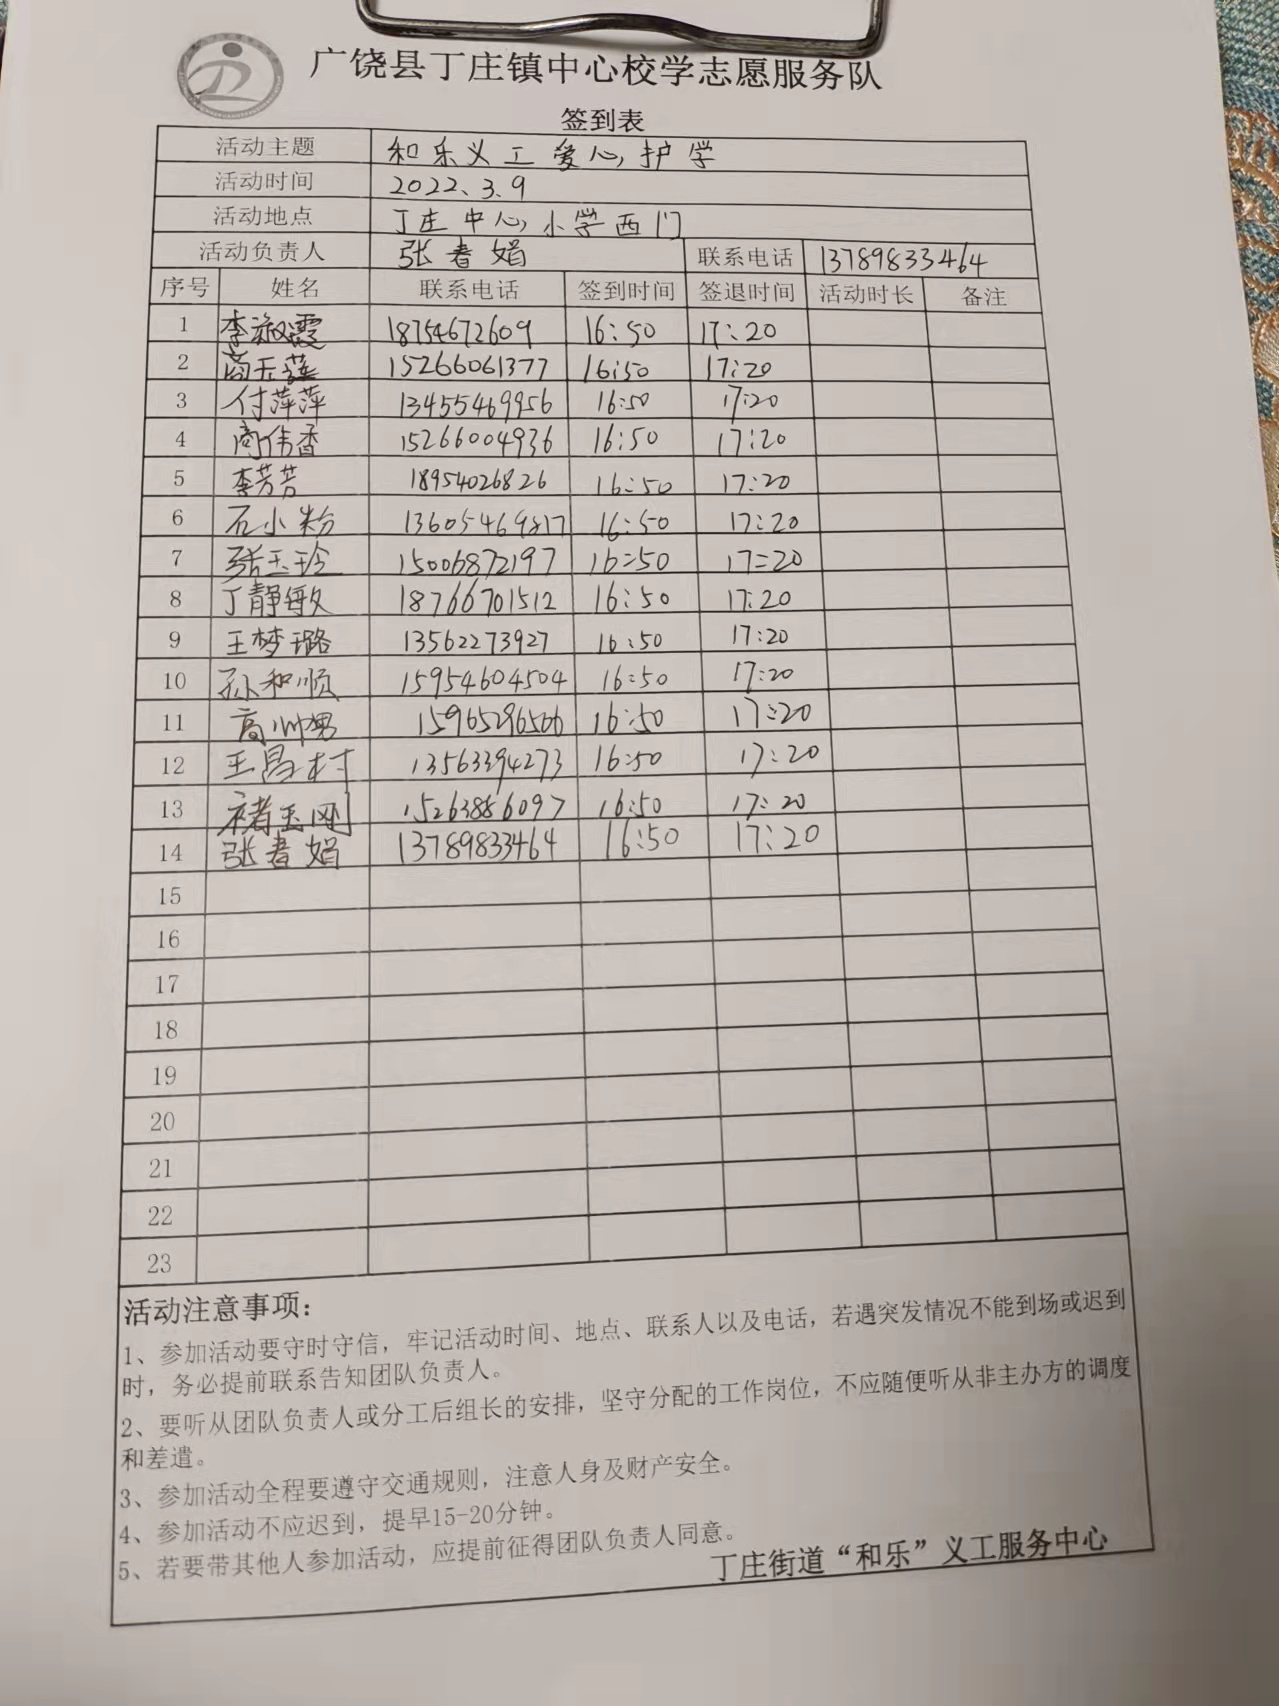 广饶县丁庄镇中心校学志愿服务队
签到表
活动主题 和乐义工爱心护学
活动时间 2022.3.9
活动地点 丁庄中心小学西门
活动负责人 张春娟 联系电话 13789833464
序号 姓名 联系电话 签到时间 签退时间 活动时长 备注
1 李淑霞 18754672609 16:50 17:20
2 商玉莲 15266061377 16:50 17:20
3 付萍萍 13455469956 16:50 17:20
4 商伟香 15266004936 16:50 17:20
5 李芳芳 18954026826 16:50 17:20
6 石小粉 13605469817 16:50 17:20
7 张玉珍 15006872197 16:50 17:20
8 丁静敏 18766701512 16:50 17:20
9 王梦璐 13562273927 16:50 17:20
10 孙和顺 15954604504 16:50 17:20
11 高帅男 15965296566 16:50 17:20
12 王昌村 13563394273 16:50 17:20
13 褚玉刚 15263886097 16:50 17:20
14 张春娟 13789833464 16:50 17:20
15
16
17
18
19
20
21
22
23
活动注意事项：
1、参加活动要守时守信，牢记活动时间、地点、联系人以及电话，若遇突发情况不能到场或迟到
时，务必提前联系告知团队负责人。
2、要听从团队负责人或分工后组长的安排，坚守分配的工作岗位，不应随便听从非主办方的调度
和差遣。
3、参加活动全程要遵守交通规则，注意人身及财产安全。
4、参加活动不应迟到，提早15-20分钟。
5、若要带其他人参加活动，应提前征得团队负责人同意。
丁庄街道“和乐”义工服务中心